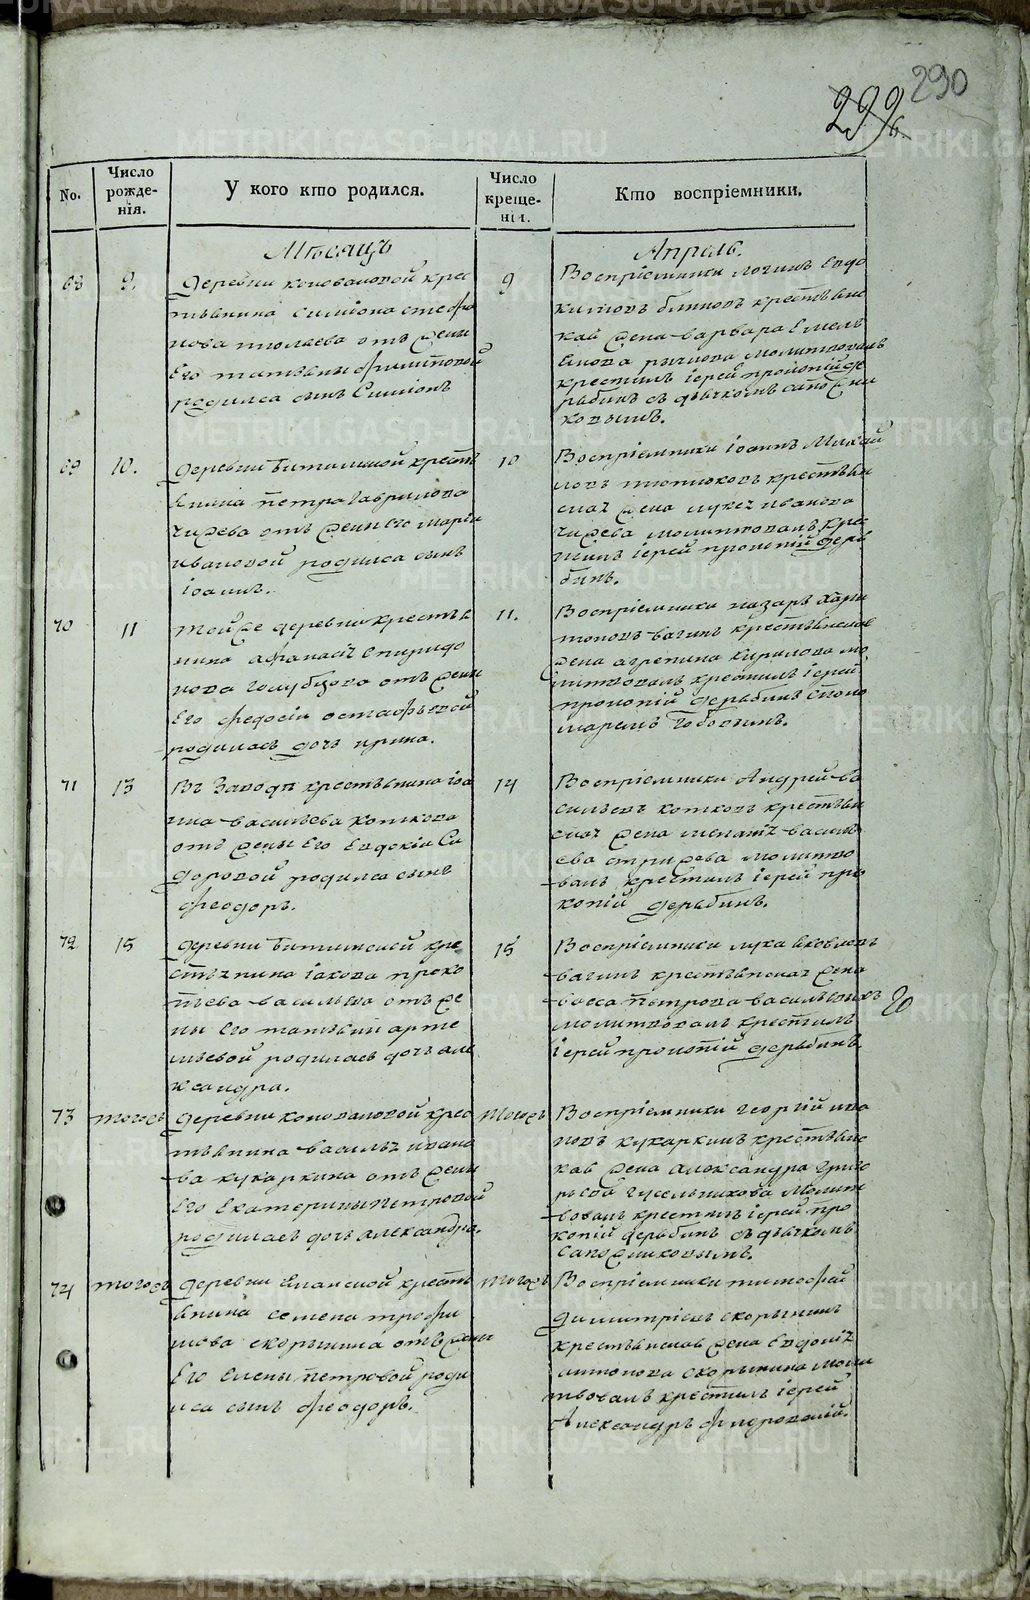 290
299
No.
Число рожде-нія.
У кого кто родился.
Число креще-нія.
Кто воспріемники.
Мѣсяцъ
Апрель.
68
9.
деревни коноваловой крес
тьянина симіона стефа
нова от жены
Его татьяны филиповой
родился сынъ Симіонъ
9
Воспріемники логинъ Евдо
кимовъ блиновъ крестьянс
кая жена варвара Емель
янова рычкова молитвовалъ
крестилъ іерей прокопій де
рябинъ съ дьячкомъ сапожни
ковымъ.
69
10.
деревни битимской кресть
янина петра гаврилова
чижева отъ жены Его маріи
ивановой родился сынъ
іоаннъ.
10
Воспріемники іоаннъ Михай
ловъ крестьян
ская жена ивановa
чижева молитвовалъ крес
тилъ іерей прокопій деря
бинъ.
70
11
тойже деревни крестья
нина афанасія спиридо
нова голубцова отъ жены
Его федосіи остафьевой
родилась дочь ирина.
11.
Воспріемники назаръ хари
тоновъ вагинъ крестьянская
жена агрепина кирилова мо
литвовалъ крестилъ іерей
прокопій дерябинъ споно
маремъ
71
13
Въ Заводѣ крестьянина іоа
нна васильева коткова
отъ жены Его Евдокіи Си
доровой родился сынъ
феодоръ.
14
Воспріемники Андрей ва
сильевъ котковъ крестьян
ская жена василь
ева стрижева молитво
валъ крестилъ іерей про
копій дерябинъ.
72
15
деревни битимской кре
стьянина іакова проко
пьева васильева отъ же
ны Его татьяны арте
мьевой родилась дочь але
ксандра.
15
Воспріемники лука яковлевъ
вагинъ крестьянская жена
васса петрова васильевыхъ
молитвовалъ крестилъ
іерей прокопій дерябинъ.
73
тогожъ
деревни коноваловой крес
тьянина василья ивано
ва кукаркина отъ жены
Его Екатерины петровой
родилась дочь александра.
тогожъ
Воспріемники георгій ива
новъ кукаркинъ крестьянс
кая жена александра григо
рьева гусельникова молит
вовалъ крестилъ іерей про
копій дерябинъ съ дьячкомъ
сапожниковымъ.
74
тогожъ
деревни Еланской кресть
янина семена трофи
мова скорынина отъ жены
Его Елены петровой роди
лса сынъ феодоръ.
тогожъ
Воспріемники тимофей
димитріевъ скорынинъ
крестьянская жена Евдокія
антонова скорынина моли
твовалъ крестилъ іерей
Александръ флоровскій.